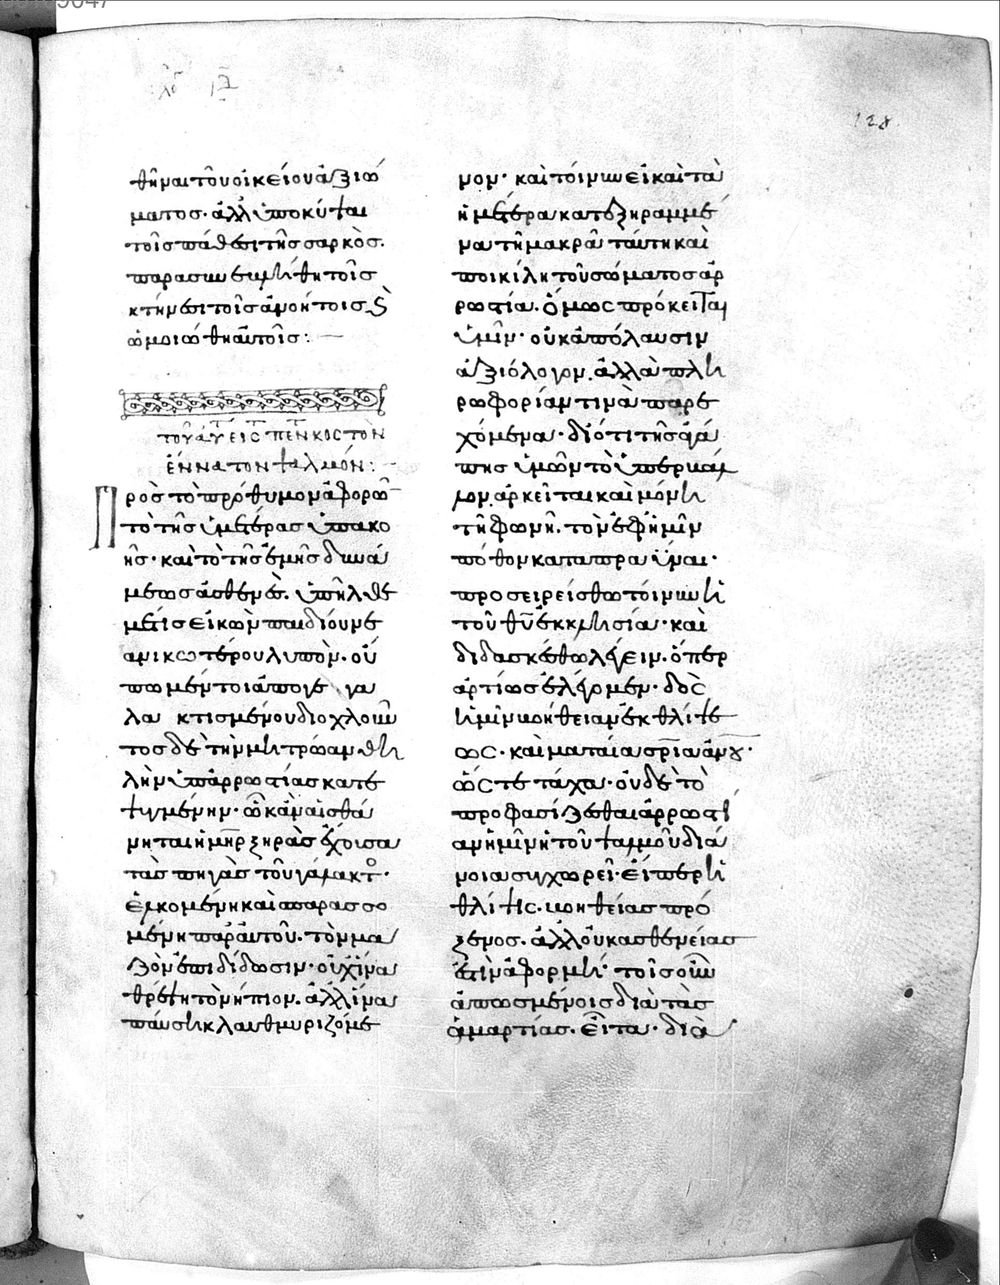 λο ιδ
128
θῆναι τοῦ οἰκείου ἀξιώ
ματος· ἀλλ' ὑποκύψαι
τοῖς πάθεσι τῆς σαρκὸς.
παρασυνεβλήθη τοῖς
κτήνεσι τοῖς ἀνοήτοις κ(αὶ)
ὡμοιώθη αὐτοῖς:
τοῦ αὐ(τοῦ) εἰς τ(ὸν) πεντηκοστὸν
ἔννατον ψαλμόν:
Πρὸς τὸ πρόθυμον ἀφορῶ(ν)
τὸ τῆς ὑμετέρας ὑπακο
ῆς· καὶ τὸ τῆς ἐμῆς δυνά
μεως ἀσθενὲς. ὑπῆλθέ
με τίς εἰκὼν παιδίου νε
ανικωτέρου λυπὸν. οὐ
πω μέν τοι ἀπογε γα
λα κτισμένου διοχλοῦν
τος δὲ τὴν μητρώαν θη
λὴν ὑπ' ἀρρωστίας κατε
ψυγμένην· ὃ κἂν αἴσθά
νηται ἡ μ(ήτ)ηρ ξηρὰς ἔχουσα
τὰς πηγὰς τοῦ γάλακτο(ς)·
ἑλκομένη καὶ σπαρασσο
μένη παρ' αὐτοῦ. τὸν μα
ζὸν ἐπιδίδωσιν· οὐχ ἵνα
θρέψη τὸν νήπιον. ἀλλ' ἵνα
παύση κλαυθμυριζόμε
νον· καὶ τοίνυν εἰ καὶ τὰ
ἡμέτερα κατεξήραμμέ
να τῆ μακρᾶ ταύτη καὶ
ποικίλη τοῦ σώματος ἀρ
ρωστία. ὅμως πρόκειται
ὑμῖν· οὐκ ἀπόλαυσιν
ἀξιόλογον. ἀλλὰ πλη
ροφορίαν τινὰ παρε
χόμενα· διότι τῆς ἀγά
πης ὑμῶν τὸ ὑπερβάλ
λον. ἀρκεῖται καὶ μόνη
τῆ φωνῆ. τὸν ἐφ' ἡμῖν
πόθον καταπραΰναι·
προσειρείσθω τοίνυν ἡ
τοῦ θ(εο)ῦ ἐκκλησία· καὶ
διδασκέσθω λέγειν. ὅπερ
ἀρτίως ἐλέγομεν· δὸς
ἡμῖν βοήθειαν ἐκ θλίψε
ως· καὶ ματαία σ(ωτη)ρία ἀν(θρώπ)ου·
ὥς τε τάχα· οὐδὲ τὸ
προφασίζεσθαι ἀρρωστί
αν ἡμῖν ἡ τοῦ ψαλμοῦ διά
νοια συγχωρεῖ· εἴπερ ἡ
θλίψις. βοηθείας πρό
ξενος. ἀλλ' οὐκ ἀσθενείας
ἐστὶν ἀφορμὴ· τοῖς οὖν
ἀπωσμένοις διὰ τὰς
ἁμαρτίας. εἶτα· διὰ